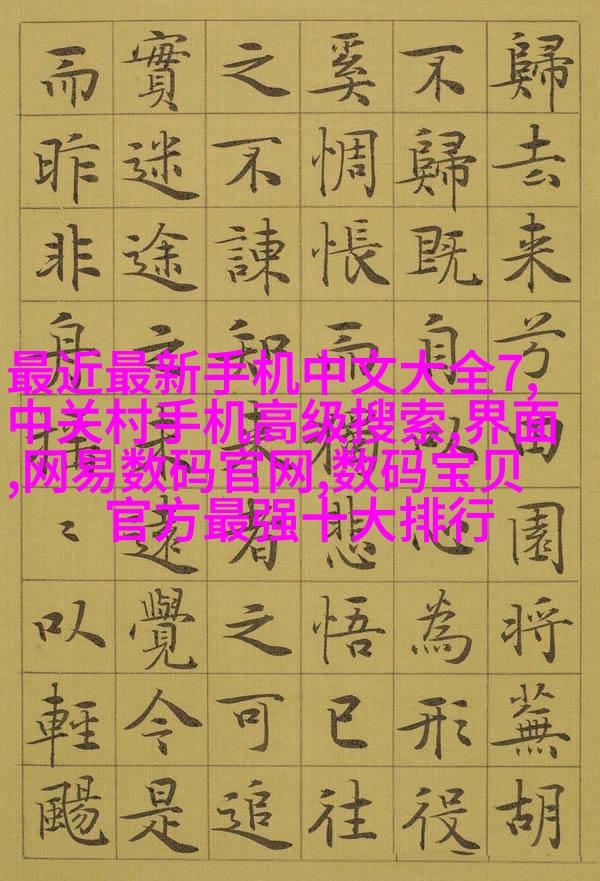 歸去来兮田園将蕪胡
不歸既自以心為形役
奚惆悵而獨悲悟已往
之不諫知来者之可追
實迷途其未遠覺今是
而昨非舟摇〻以輕颺
最近最新手机中文大全7,
中关村手机高级搜索,界面
,网易数码官网,数码宝贝
官方最强十大排行